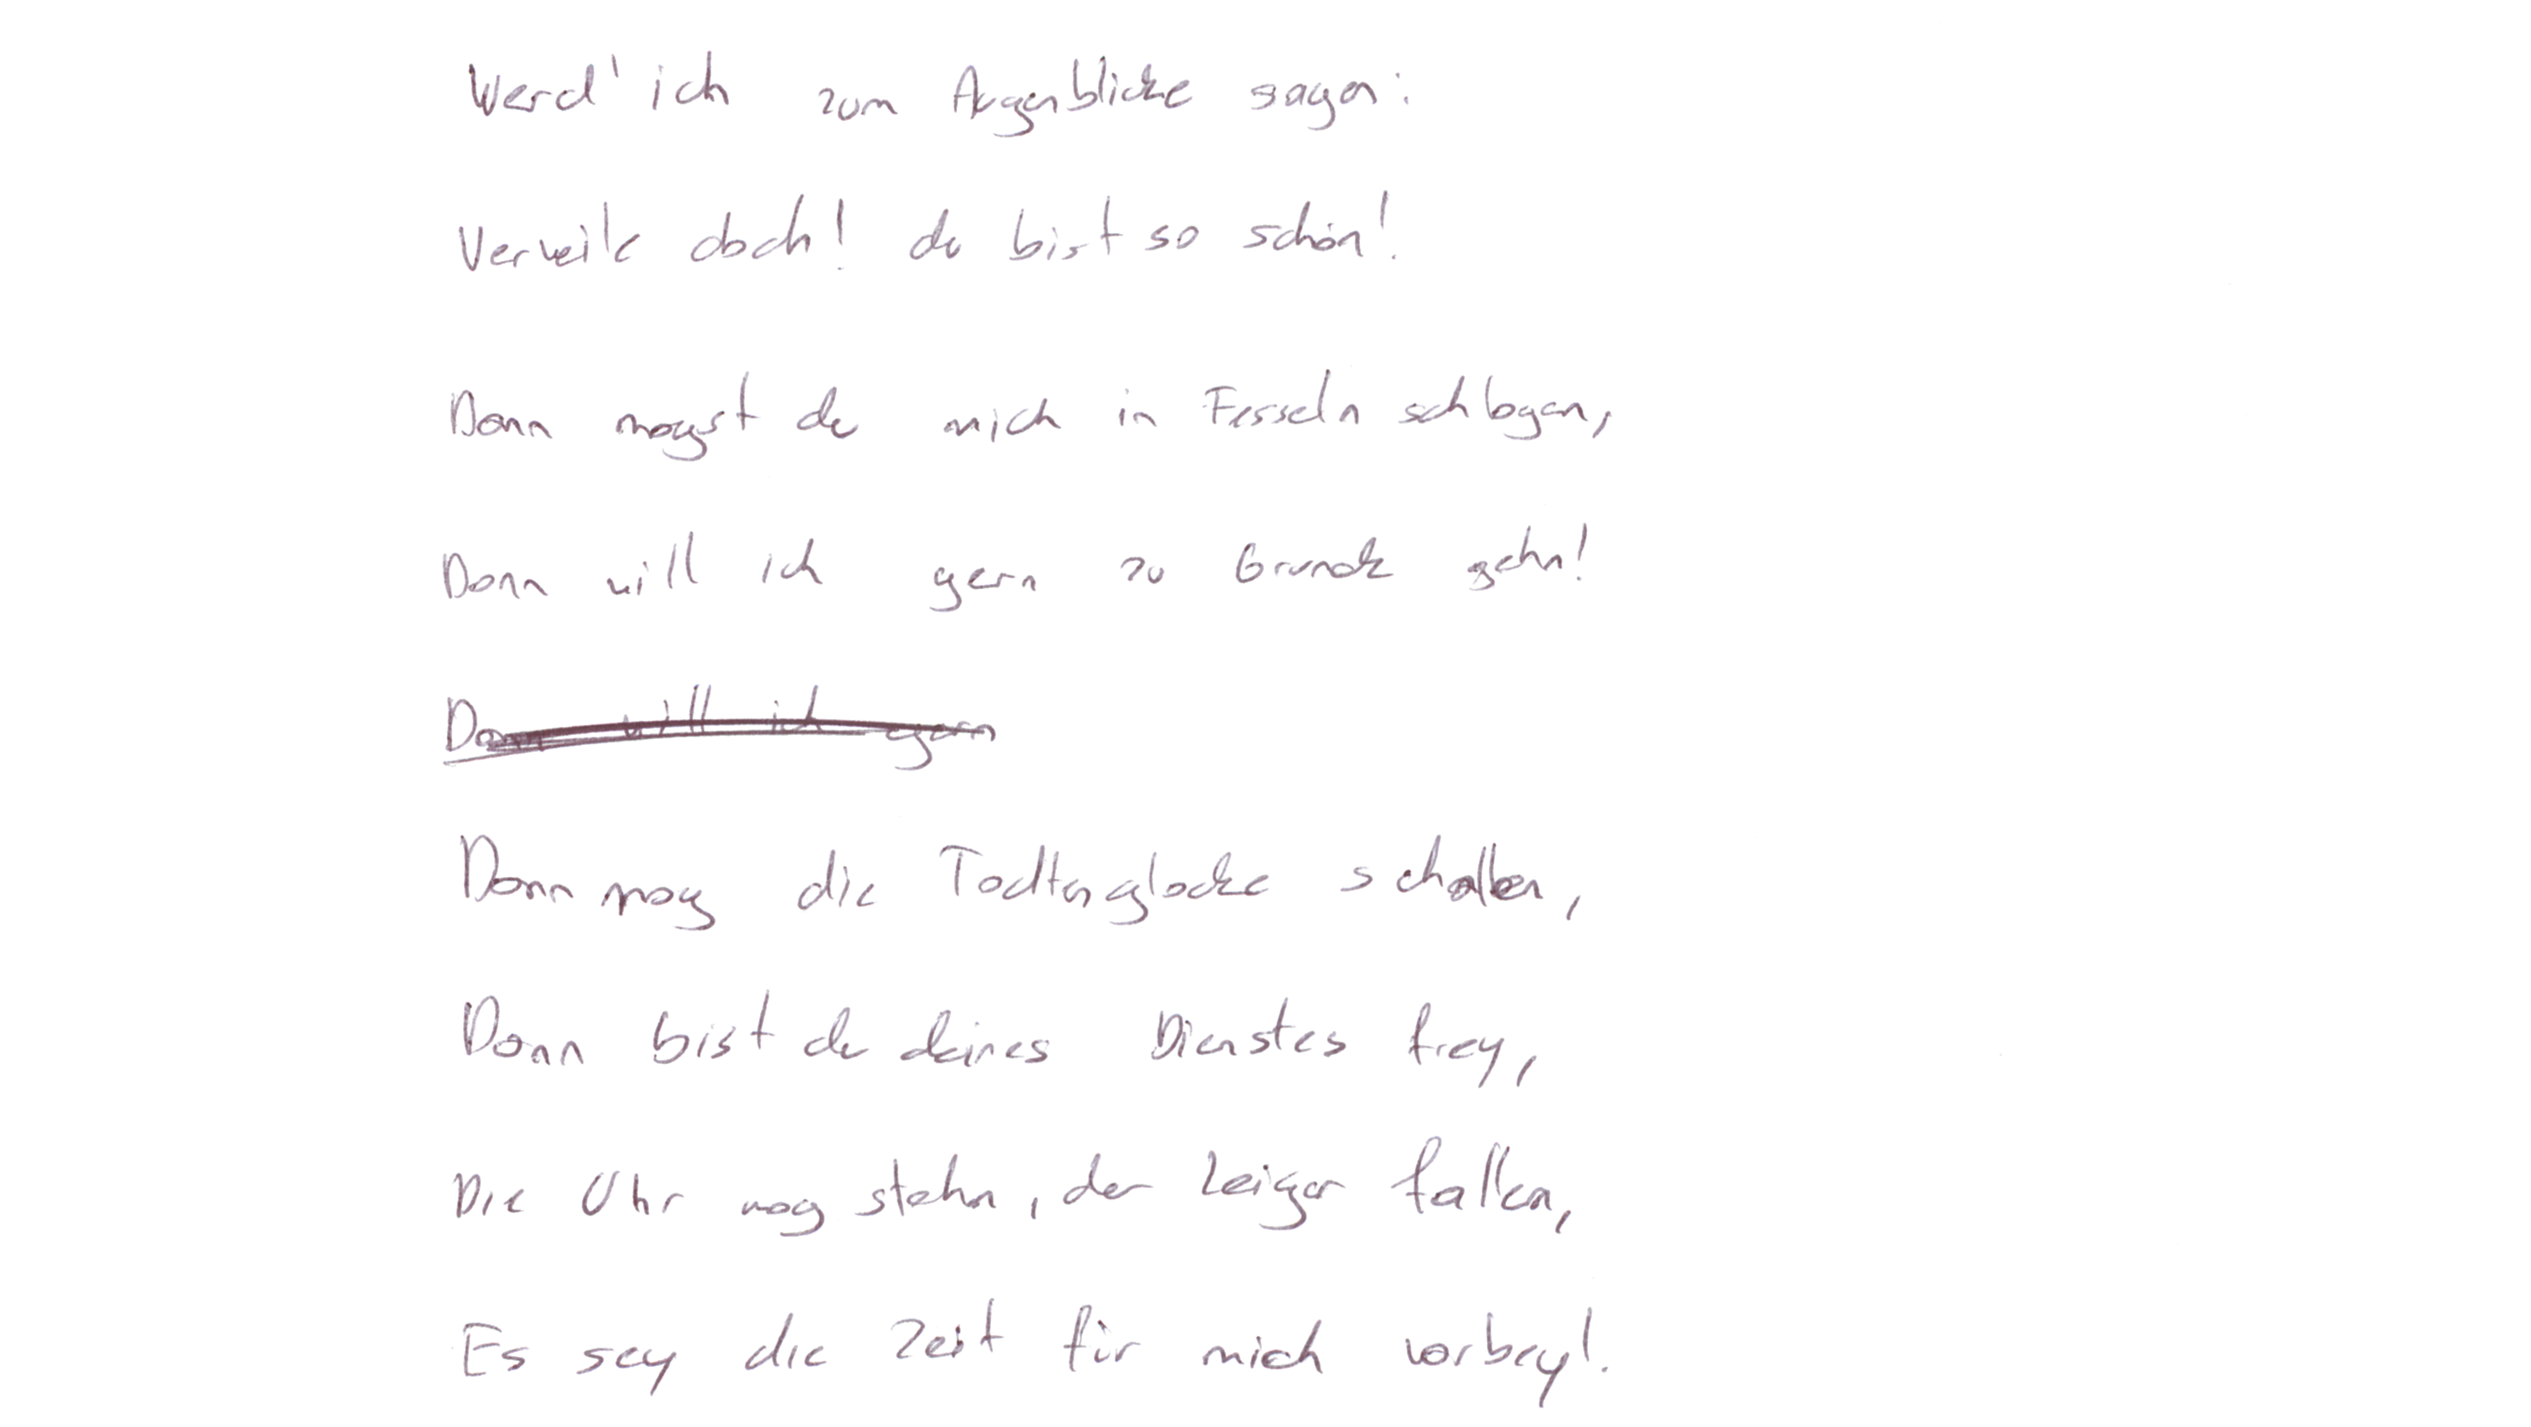 Werd' ich zum Augenblicke sagen:
Verweile doch! du bist so schön!
Dann magst du mich in Fesseln schlagen,
Dann will ich gern zu Grunde gehn!
Dann will ich gern
Dann mag die Todtenglocke schallen,
Dann bist du deines Dienstes frey,
Die Uhr mag stehn, der Zeiger fallen,
Es sey die Zeit für mich vorbey!